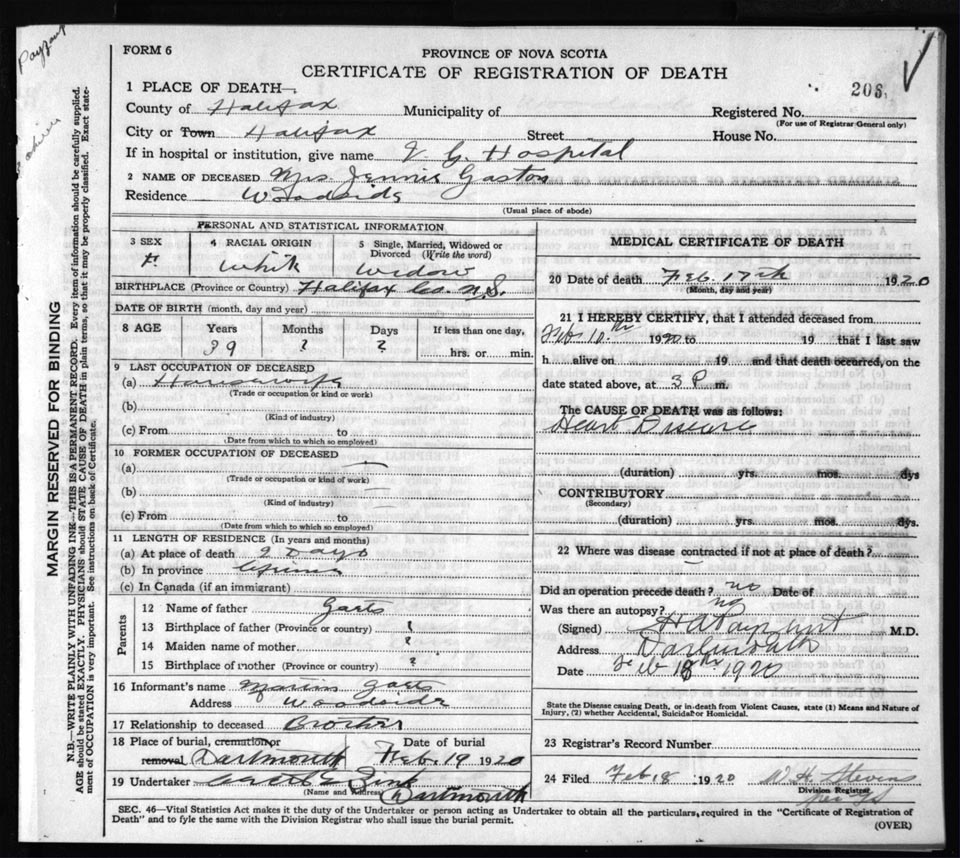 FORM 6
PROVINCE OF NOVA SCOTIA
CERTIFICATE OF REGISTRATION OF DEATH
208
1 PLACE OF DEATH—
County of Halifax Municipality of Registered No.
(For use of Registrar General only)
City or Town Halifax Street House No.
If in hospital or institution, give name V. G. Hospital
2 NAME OF DECEASED Mrs Jennie Gaston
Residence Woodside
(Usual place of abode)
PERSONAL AND STATISTICAL INFORMATION
3 SEX 4 RACIAL ORIGIN 5 Single, Married, Widowed or Divorced (Write the word)
F. White Widow
BIRTHPLACE (Province or Country) Halifax Co. N.S.
DATE OF BIRTH (month, day and year)
8 AGE Years Months Days If less than one day,
39 ? ? hrs. or min.
9 LAST OCCUPATION OF DECEASED
(a) Housewife
(Trade or occupation or kind or work)
(b)
(Kind of industry)
(c) From to
(Date from which to which so employed)
10 FORMER OCCUPATION OF DECEASED
(a)
(Trade or occupation or kind of work)
(b)
(Kind of industry)
(c) From to
(Date from which to which so employed)
11 LENGTH OF RESIDENCE (In years and months)
(a) At place of death 9 Days
(b) In province
(c) In Canada (if an immigrant)
Parents
12 Name of father
13 Birthplace of father (Province or country) ?
14 Maiden name of mother ?
15 Birthplace of mother (Province or country) ?
16 Informant's name
Address Woodside
17 Relationship to deceased Brother
18 Place of burial, cremation or Date of burial
removal Dartmouth Feb. 19 1920
19 Undertaker
(Name and Address) Dartmouth
MEDICAL CERTIFICATE OF DEATH
20 Date of death Feb. 17th 1920
(Month, day and year)
21 I HEREBY CERTIFY, that I attended deceased from
Feb. 10th 1920 to 19 that I last saw
h alive on 19 and that death occurred, on the
date stated above, at 3 P m.
The CAUSE OF DEATH was as follows:
Heart Disease
(duration) yrs. mos. dys
CONTRIBUTORY
(Secondary)
(duration) yrs. mos. dys.
22 Where was disease contracted if not at place of death?
Did an operation precede death? no Date of
Was there an autopsy? no
(Signed) M.D.
Address Dartmouth
Date Feb 18th 1920
State the Disease causing Death, or in death from Violent Causes, state (1) Means and Nature of
Injury, (2) whether Accidental, Suicidal or Homicidal.
23 Registrar's Record Number
24 Filed Feb 18 1920 W. H. Stevens
Division Registrar
SEC. 46—Vital Statistics Act makes it the duty of the Undertaker or person acting as Undertaker to obtain all the particulars, required in the "Certificate of Registration of
Death" and to fyle the same with the Division Registrar who shall issue the burial permit.
(OVER)
MARGIN RESERVED FOR BINDING
N.B.—WRITE PLAINLY WITH UNFADING INK—THIS IS A PERMANENT RECORD. Every item of information should be carefully supplied.
AGE should be stated EXACTLY. PHYSICIANS should STATE CAUSE OF DEATH in plain terms, so that it may be properly classified. Exact state-
ment of OCCUPATION is very important. See instructions on back of Certificate.